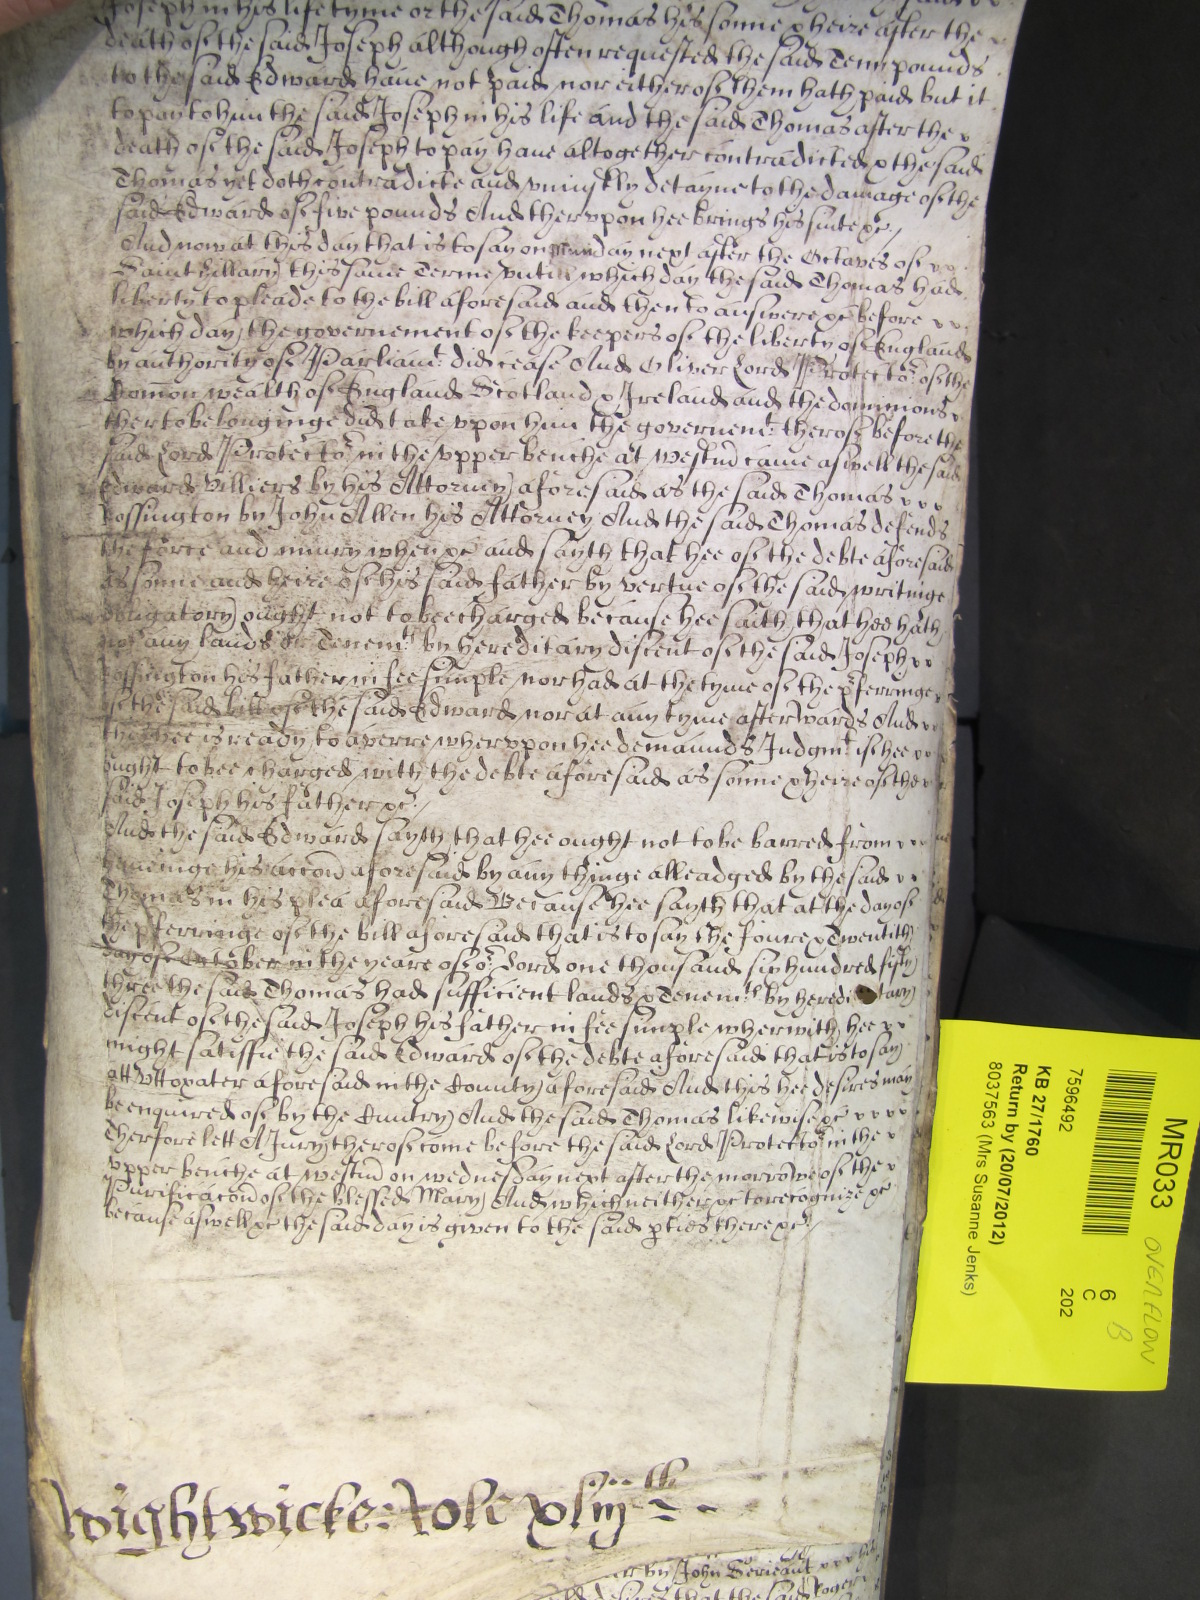 Joseph in his life tyme or the said Thomas his sonne & heire after the
death of the said Joseph although often requested the said Tenn pounds
to the said Edward haue not paid nor either of them hath paid but it
to pay to him the said Joseph in his life and the said Thomas after the
death of the said Joseph to pay haue altogether contradicted & the said
Thomas yet doth contradicte and uniustly detayne to the damage of the
said Edward of five pounds And therupon hee brings his suite &c /
And now at this day that is to say on munday next after the Octaves of
Saint Hillary this same Terme untill which day the said Thomas had
liberty to pleade to the bill aforesaid and then to answere &c before
which day the governement of the keepers of the liberty of England
by authority of Parliamt did cease And Oliver Lord Protector of the
Comon wealth of England Scotland & Ireland and the dominions
therto belonginge did take upon him the governemt therof before the
said Lord Protector in the upper benche at Westm came aswell the said
Edward Villiers by his Attorney aforesaid as the said Thomas
Cossington by John Allen his Attorney And the said Thomas defends
the force and iniury when &c and sayth that hee of the debte aforesaid
as sonne and heire of his said father by vertue of the said writinge
obligatory ought not to bee charged because hee saith that hee hath
not any lands or Tenemts by hereditary discent of the said Joseph
Cossington his father in fee simple nor had at the tyme of the pferringe
of the said bill of the said Edward nor at any tyme afterwards And
this hee is ready to averre wherupon hee demaunds Judgmt if hee
ought to bee charged with the debte aforesaid as sonne & heire of the
said Joseph his father &c /
And the said Edward sayth that hee ought not to be barred from
haveinge his accon aforesaid by any thinge alleadged by the said
Thomas in his plea aforesaid Because hee sayth that at the day of
the pferringe of the bill aforesaid that is to say the foure & Twentith
day of October in the yeare of or Lord one thousand six hundred fifty
three the said Thomas had sufficient lands & Tenemts by hereditary
discent of the said Joseph his father in fee simple wherwith hee
might satisfie the said Edward of the debte aforesaid that is to say
att Uttoxater aforesaid in the County aforesaid And this hee desires may
be enquired of by the Cuntry And the said Thomas likewise &c
Therfore lett A Jury therof come before the said Lord Protector in the
upper benche at Westm on wednesday next after the morrowe of the
Purificacon of the blessed Mary And which neither &c to recognize &c
because aswell &c the said day is given to the said pties there &c /
Wightwicke: Role xliijth
by John Serieant
desires that the said Roger
MR033
OVERFLOW
6
B
C
202
7596492
KB 27/1760
Return by (20/07/2012)
8037563 (Mrs Susanne Jenks)